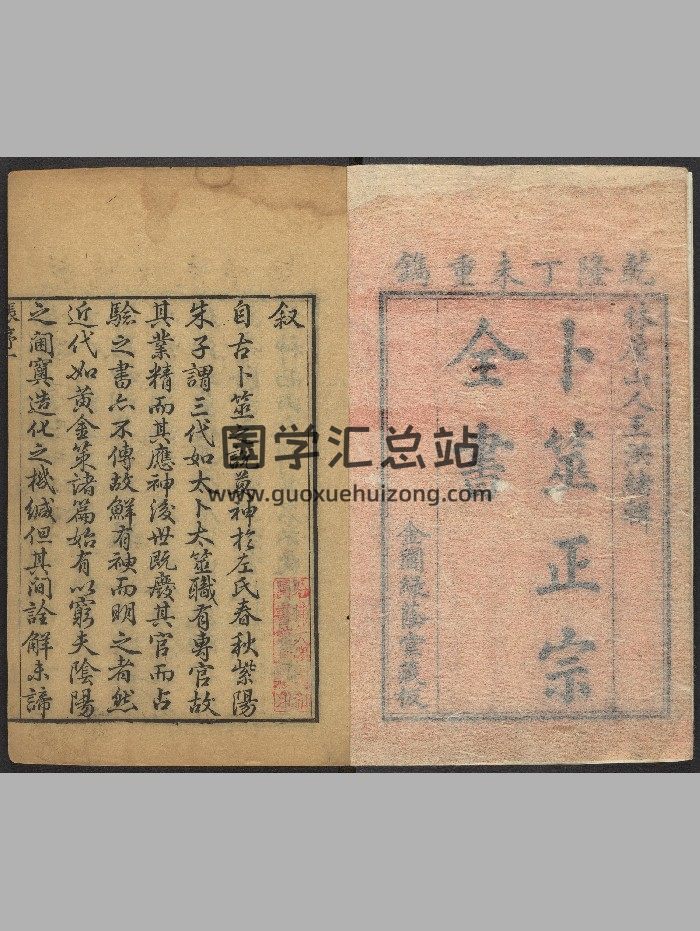 乾隆丁未重鐫
林屋山人王洪緒輯
卜筮正宗
全書
金閶綠蔭堂藏板
叙
自古卜筮之說莫神於左氏春秋紫陽
朱子謂三代如大卜大筮職有專官故
其業精而其應神後世既廢其官而占
驗之書亦不傳故鮮有神而明之者然
近代如黃金策諸篇始有以窮夫陰陽
之阃奧造化之機緘但其间詮解未諦
国学汇总站
www.guoxuehuizong.com